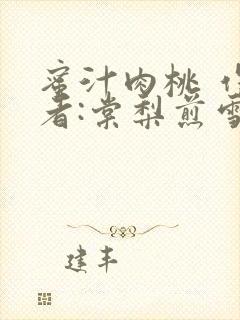 蜜汁肉桃
者:棠梨煎雪
建丰